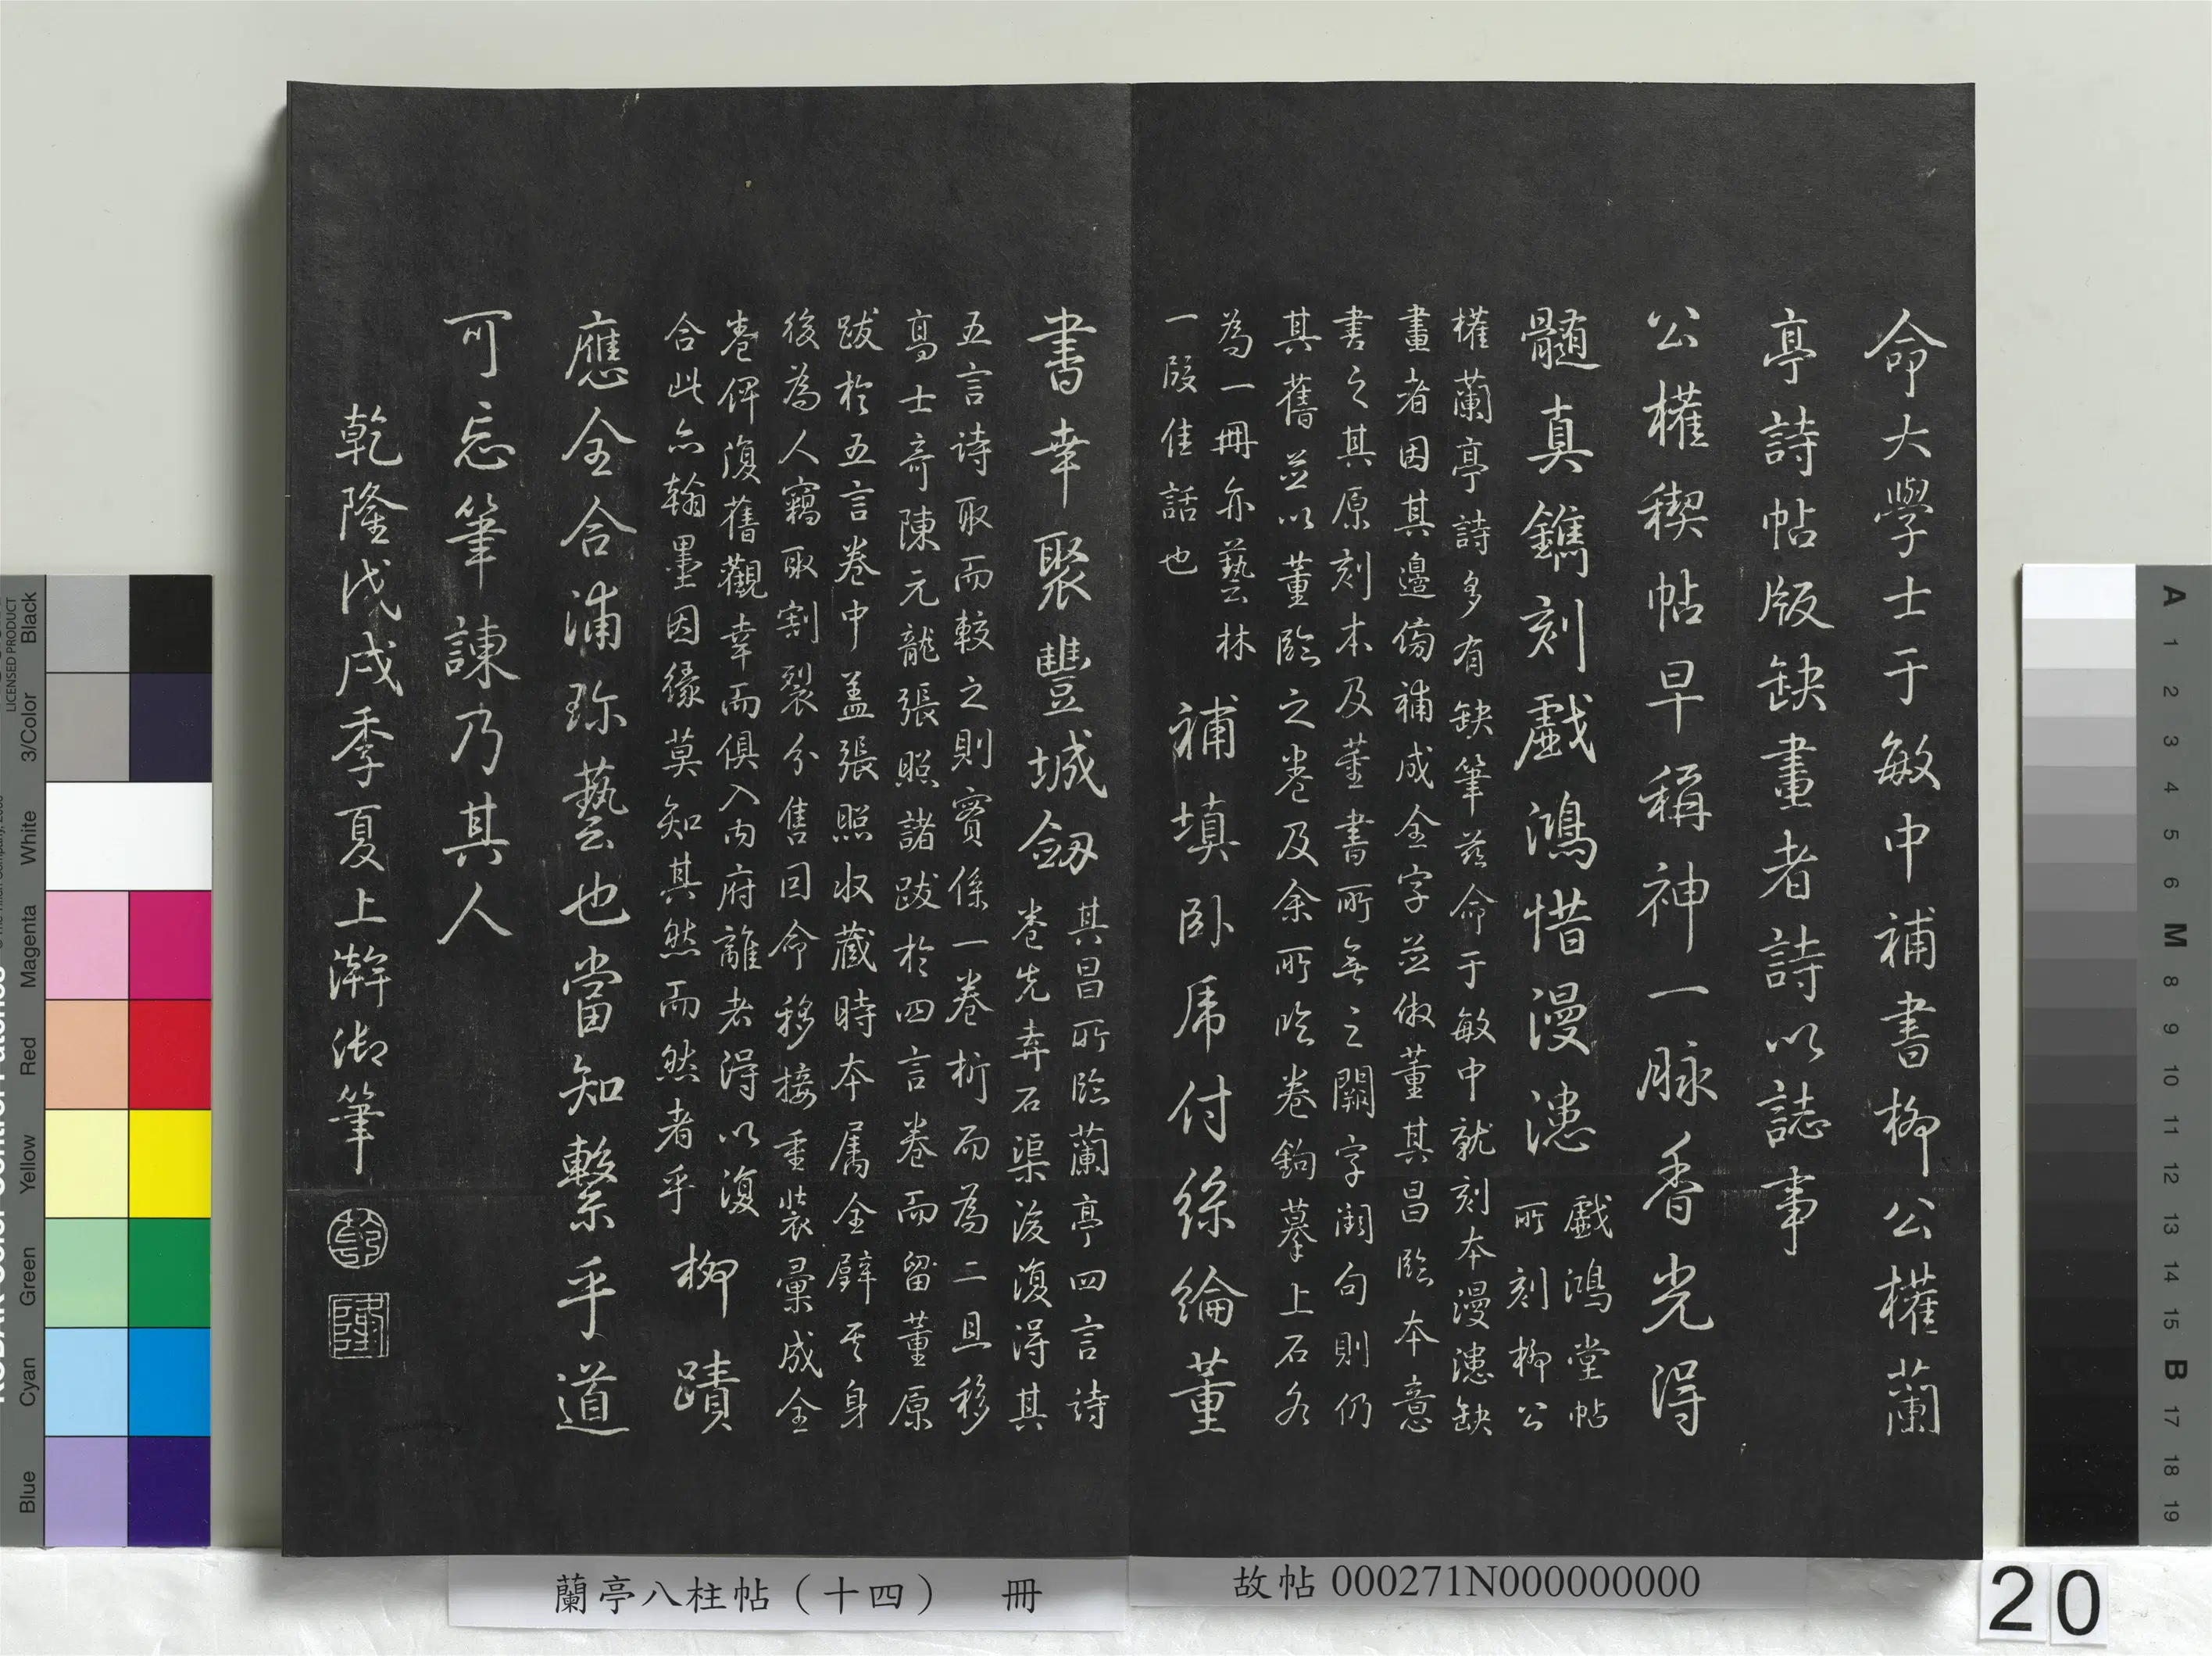 命大學士于敏中補書柳公權蘭
亭詩帖版缺畫者詩以誌事
公權稧帖早稱神一脉香光得
髓真鐫刻戲鴻惜漫漶
戲鴻堂帖
所刻柳公
權蘭亭詩多有缺筆茲命于敏中就刻本漫漶缺
畫者因其邊傍補成全字並倣董其昌臨本意
書之其原刻本及董書所無之闕字闕句則仍
其舊並以董臨之卷及余所臨卷鉤摹上石各
為一冊亦藝林
一段佳話也
補填卧帋付絲綸董
書幸聚豐城劔
其昌所臨蘭亭四言詩
卷先弆石渠後復得其
五言詩取而較之則實係一卷析而為二且移
高士奇陳元龍張照諸跋於四言卷而留董原
跋於五言卷中盖張照收藏時本屬全璧其身
後為人竊取割裂分售因命移接重裝彙成全
卷俾復舊觀幸而俱入內府離者得以復
合此亦翰墨因緣莫知其然而然者乎
柳蹟
應全合浦珎藝也當知繫乎道
可忘筆諫乃其人
乾隆戊戌季夏上澣御筆
乾
隆
蘭亭八柱帖（十四） 冊
故帖 000271N000000000
20
LICENSED PRODUCT
Black
3/Color
White
Magenta
Red
Yellow
Green
Cyan
Blue
A
1
2
3
4
5
6
M
8
9
10
11
12
13
14
15
B
17
18
19